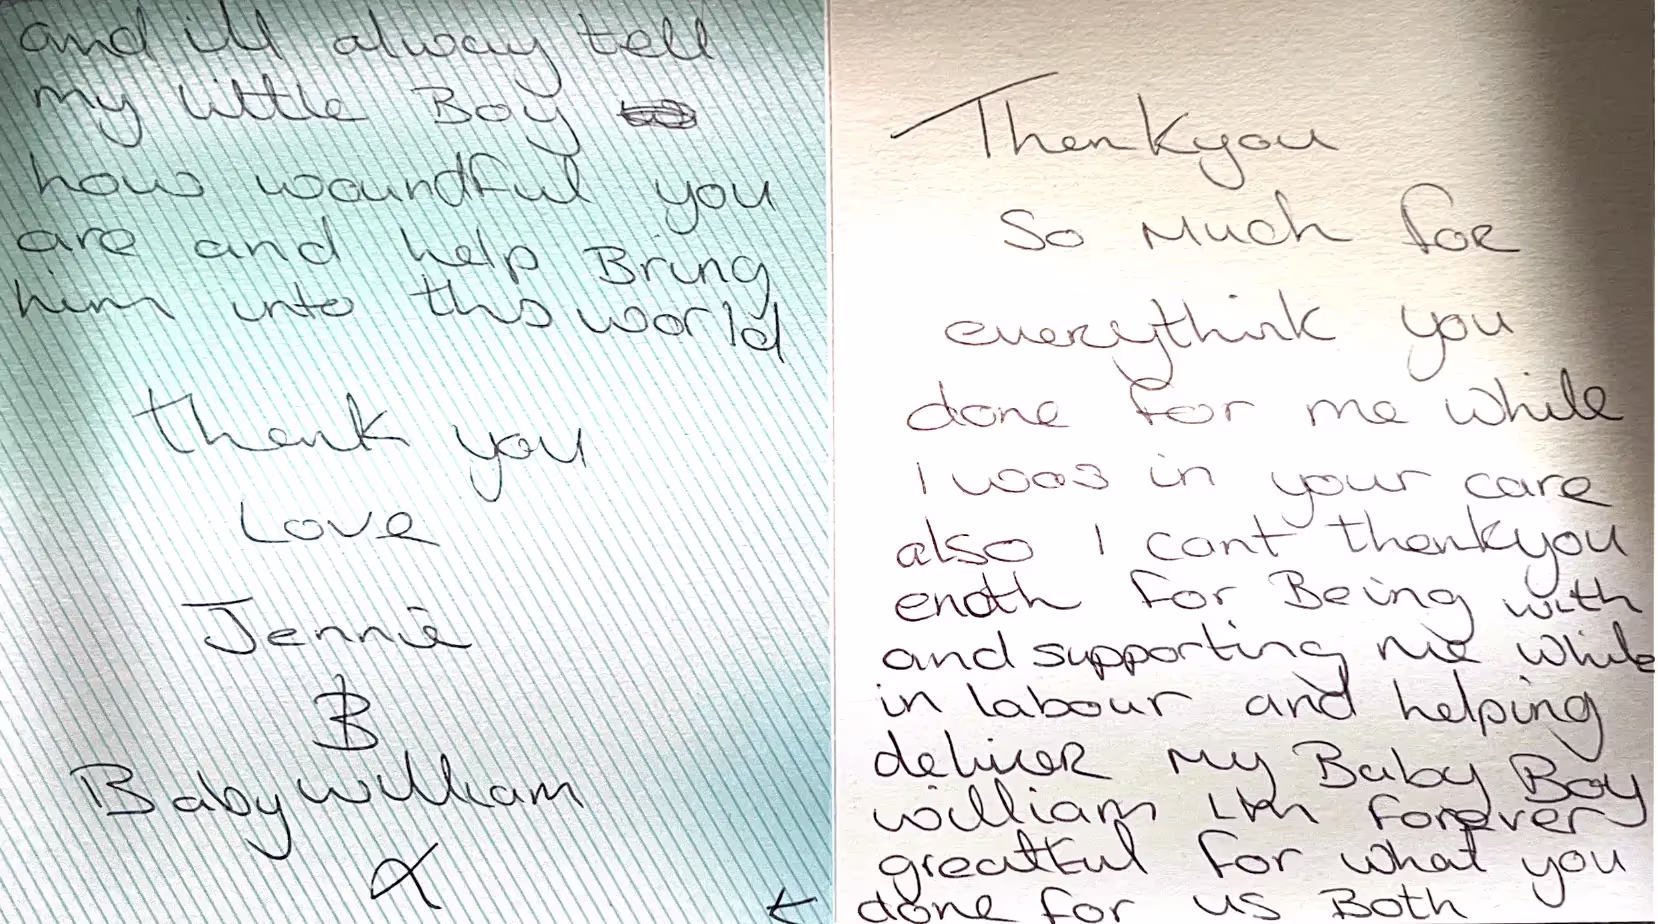 Thenkyou
so much for
everythink you
done for me while
I was in your care
also I cant thenkyou
enoth for Being with
and supporting me while
in labour and helping
deliver my Baby Boy
william im forever
greatful for what you
done for us Both
←
and ill alway tell
my little Boy
how woundful you
are and help Bring
him into this world
thenk you
Love
Jennie
&
Baby william
x